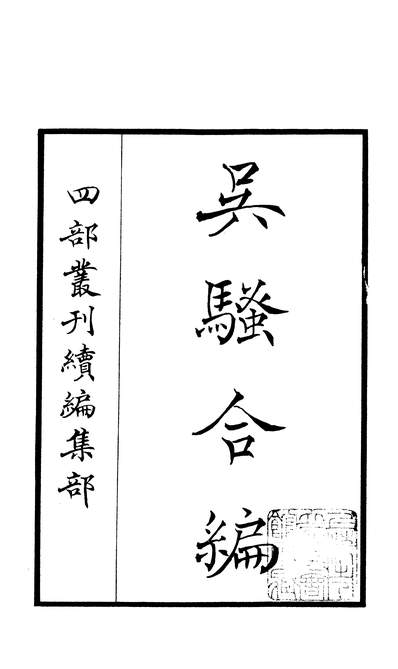 吳騷合編
四部叢刊續編集部